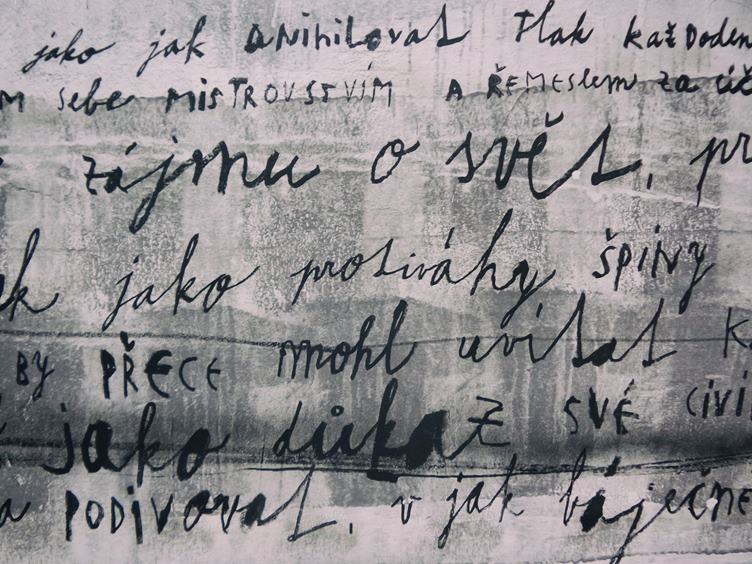 jako jak anihilovat tlak každoden
m sebe mistrovstvím a řemeslem za
zájmu o svět, pr
k jako protiváhy špíny
by přece mohl uvítat k
jako důkaz své civi
a podivovat, v jak báječné